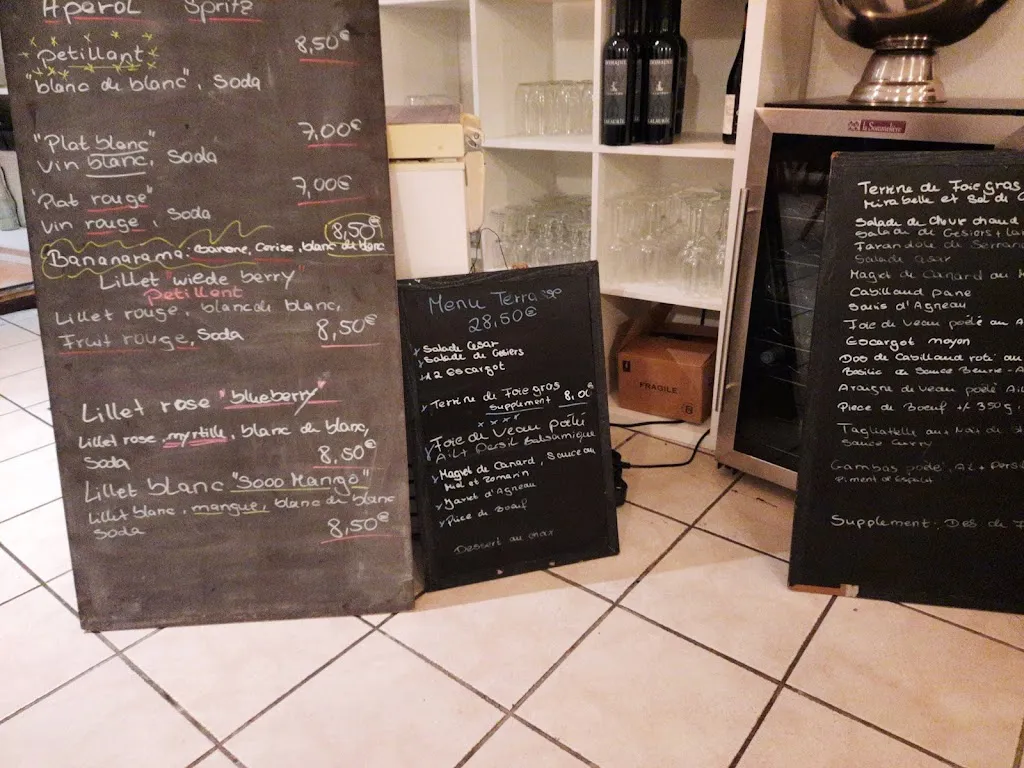 Aperol Spritz
Petillant 8,50€
"blanc du blanc", Soda
"Plat blanc" 7,00€
Vin blanc, Soda
"Plat rouge" 7,00€
Vin rouge, Soda
8,50€
Bananarama: banane, Cerise, blanc du blanc
Lillet "wiede berry"
Petillant
Lillet rouge, blanc du blanc,
Fruit rouge, Soda 8,50€
Lillet rose "blueberry"
Lillet rose, myrtille, blanc du blanc,
Soda 8,50€
Lillet blanc "Sooo Mango"
Lillet blanc, mangue, blanc du blanc
Soda 8,50€
Menu Terrasse
28,50€
Salade Cesar
Salade de Gesiers
12 Escargot
Terrine de Foie gras
Supplement 8,00€
Foie de Veau poêlé
Ail + Persil Balsamique
Magret de Canard, Sauce au
Miel et Romarin
Jarret d'Agneau
Piece de Boeuf
Dessert au choix
FRAGILE
la Sommelière
Terrine de Foie gras
Mirabelle et Sel de
Salade de Chèvre chaud
Salade de Gesiers + La
Farandole de Serrano
Salade Cesar
Magret de Canard au
Cabillaud pané
Souris d'Agneau
Foie de Veau poêlé au
Escargot moyen
Dos de Cabillaud roti au
Basilic ou Sauce Beurre
Araigne de Veau poêlé Ail
Piece de Boeuf +/- 350g
Tagliatelle aux Noix de
Sauce Curry
Gambas poêlé, Ail + Persil
Piment de Espelette
Supplement: Dés de F